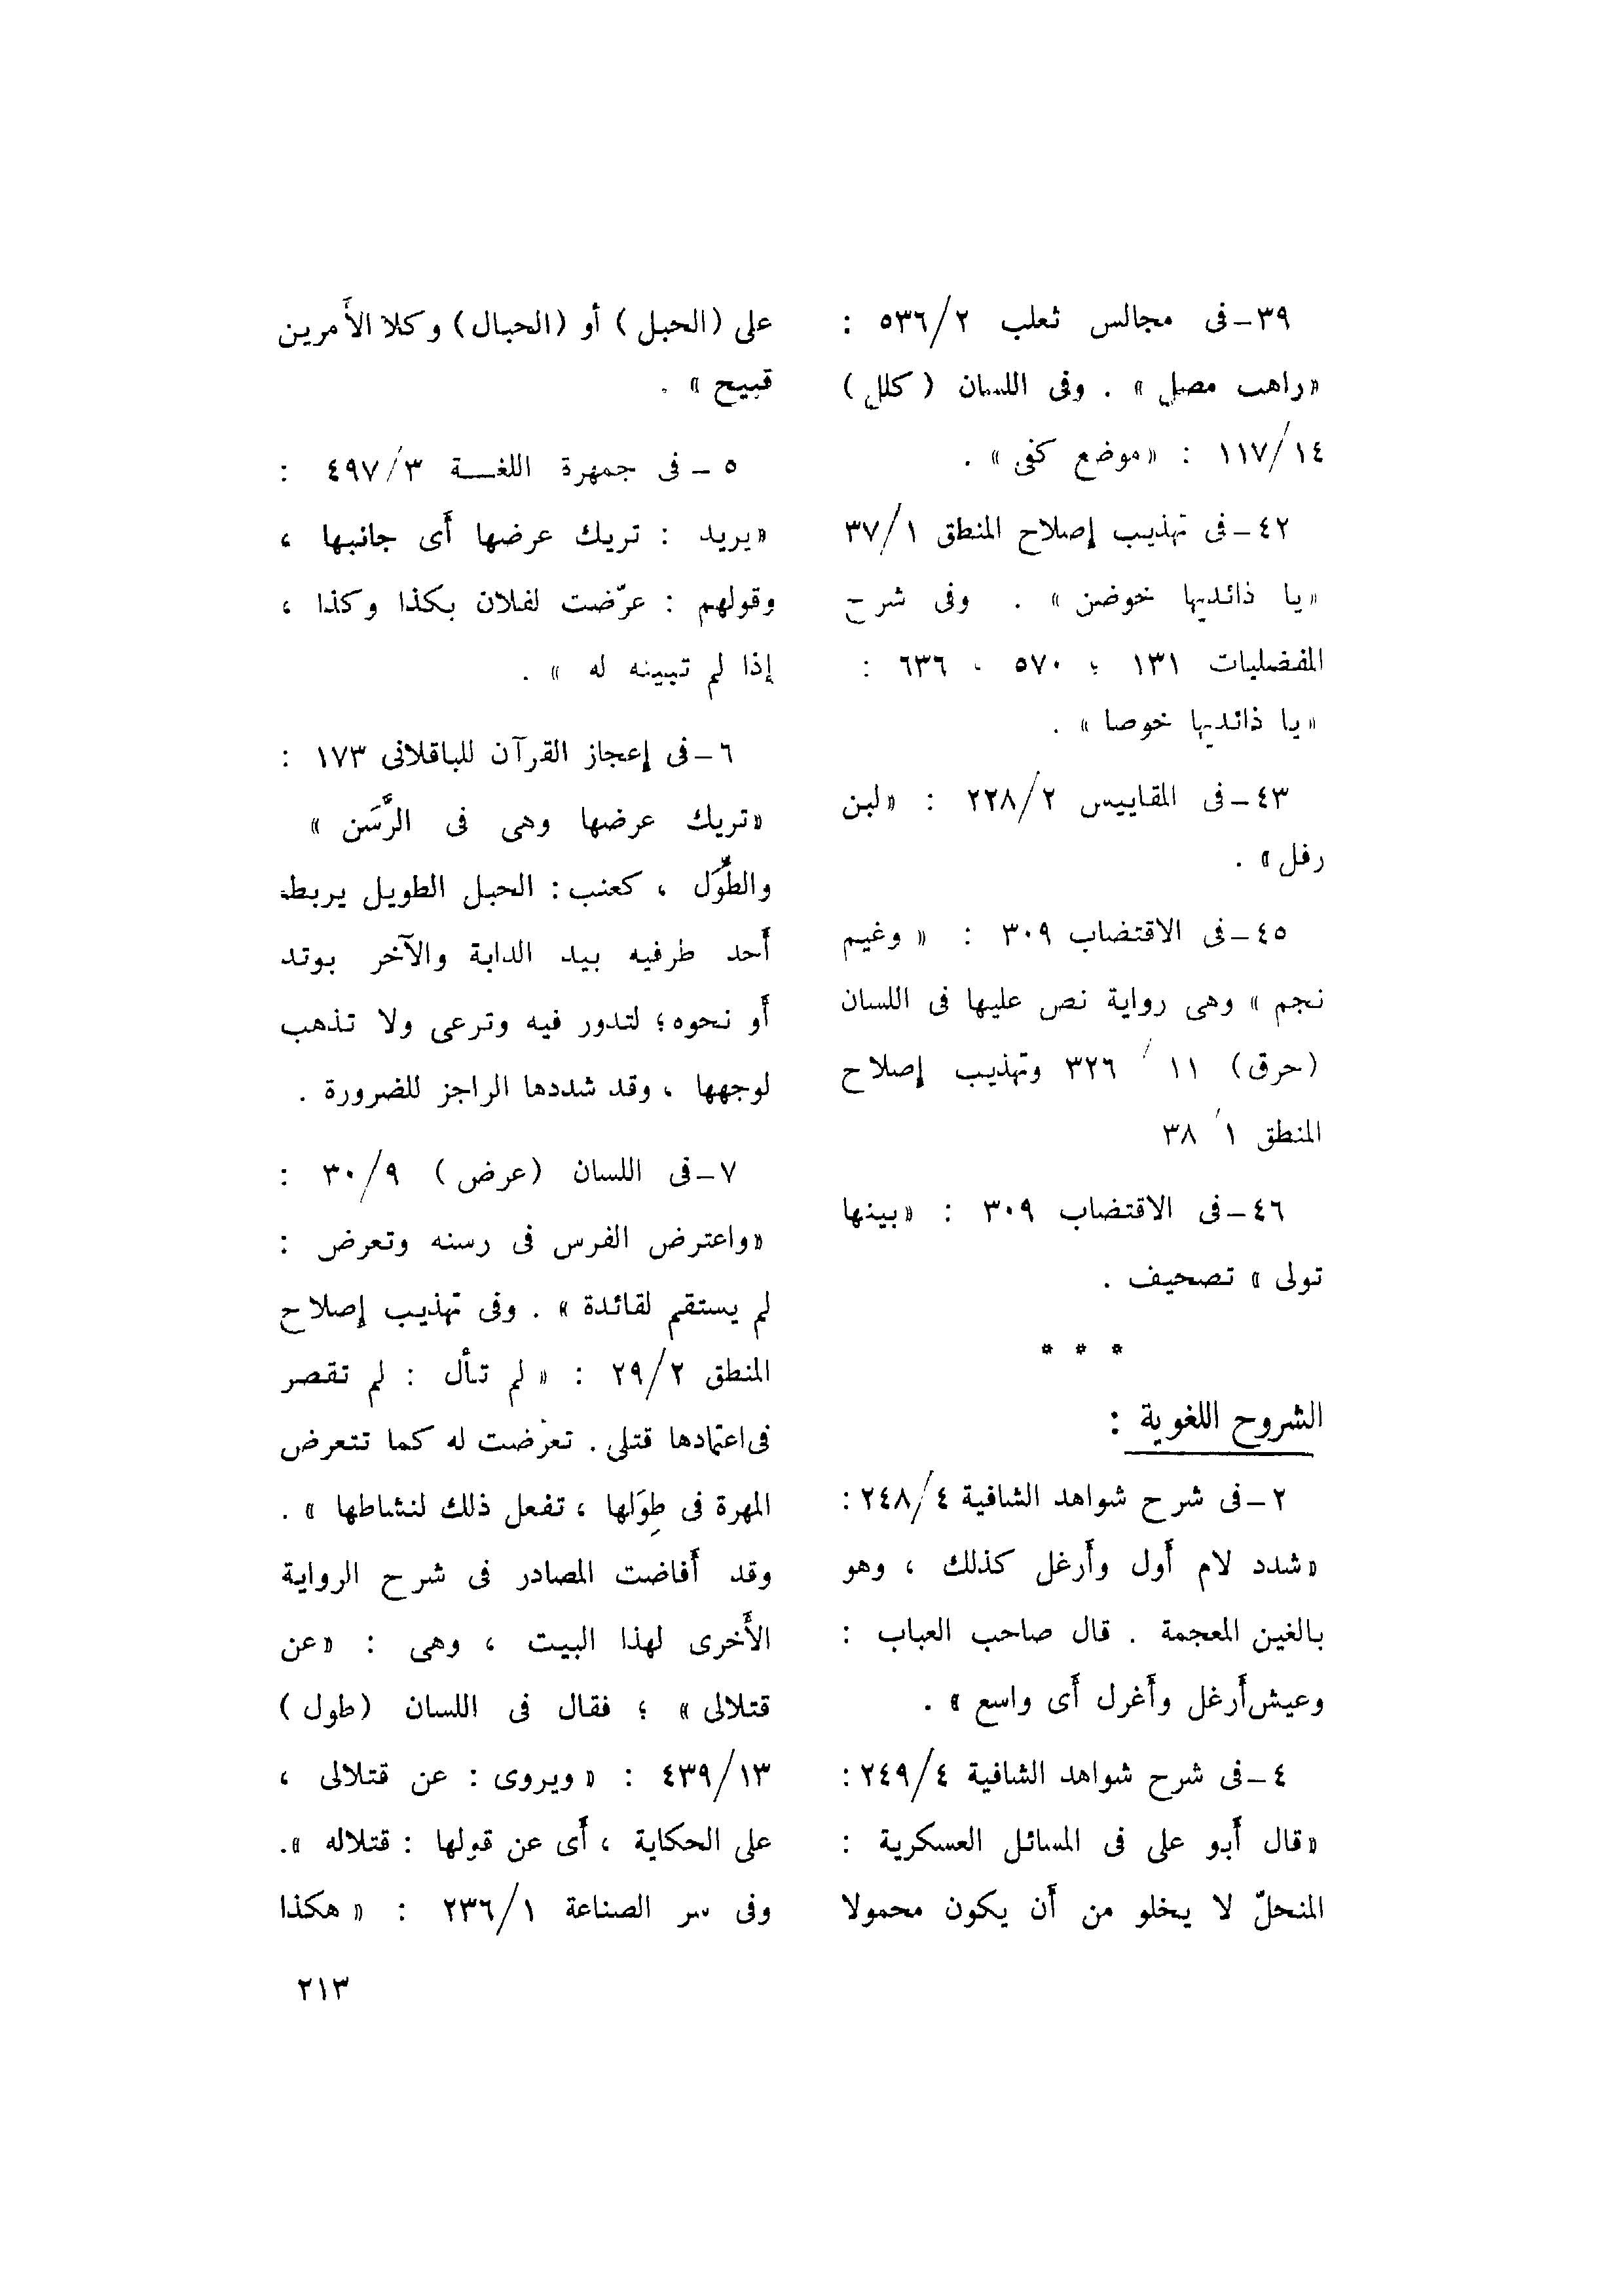 ٣٩-فى مجالس ثعلب ٥٣٦/٢ :
«راهب مصل » . وفى اللسان ( كلل )
١١٧/١٤ : «موضع كفى » .
٤٢-فى تهذيب إصلاح المنطق ٣٧/١
«يا ذائديها خوضن » . وفى شرح
المفضليات ١٣١ ، ٥٧٠ ، ٦٣٦ :
«يا ذائديها خوصا » .
٤٣-فى المقاييس ٢٢٨/٢ : «لبن
رفل » .
٤٥-فى الاقتضاب ٣٠٩ : « وغيم
نجم » وهى رواية نص عليها فى اللسان
(حرق) ١١ / ٣٢٦ وتهذيب إصلاح
المنطق ١ / ٣٨
٤٦-فى الاقتضاب ٣٠٩ : «بينها
تولى » تصحيف .
* * *
الشروح اللغوية :
٢-فى شرح شواهد الشافية ٢٤٨/٤ :
«شدد لام أول وأرغل كذلك ، وهو
بالغين المعجمة . قال صاحب العباب :
وعيش أرغل وأغرل أى واسع » .
٤-فى شرح شواهد الشافية ٢٤٩/٤ :
«قال أبو على فى المسائل العسكرية :
المنحلّ لا يخلو من أن يكون محمولا
على (الحبل ) أو (الحبال) وكلا الأمرين
قبيح » .
٥ - فى جمهرة اللغة ٤٩٧/٣ :
«يريد : تريك عرضها أى جانبها ،
وقولهم : عرّضت لفلان بكذا وكذا ،
إذا لم تبينه له » .
٦-فى إعجاز القرآن للباقلانى ١٧٣ :
«تريك عرضها وهى فى الرَّسَن »
والطِّوَل ، كعنب : الحبل الطويل يربط
أحد طرفيه بيد الدابة والآخر بوتد
أو نحوه؛ لتدور فيه وترعى ولا تذهب
لوجهها ، وقد شددها الراجز للضرورة .
٧-فى اللسان (عرض ) ٣٠/٩ :
«واعترض الفرس فى رسنه وتعرض :
لم يستقم لقائدة » . وفى تهذيب إصلاح
المنطق ٢٩/٢ : « لم تأل : لم تقصر
فى اعتمادها قتلى . تعرضت له كما تتعرض
المهرة فى طِوَلها ، تفعل ذلك لنشاطها » .
وقد أفاضت المصادر فى شرح الرواية
الأخرى لهذا البيت ، وهى : «عن
قتلالى » ؛ فقال فى اللسان (طول )
٤٣٩/١٣ : « ويروى : عن قتلالى ،
على الحكاية ، أى عن قولها : قتلاله ».
وفى سر الصناعة ٢٣٦/١ : « هكذا
٢١٣